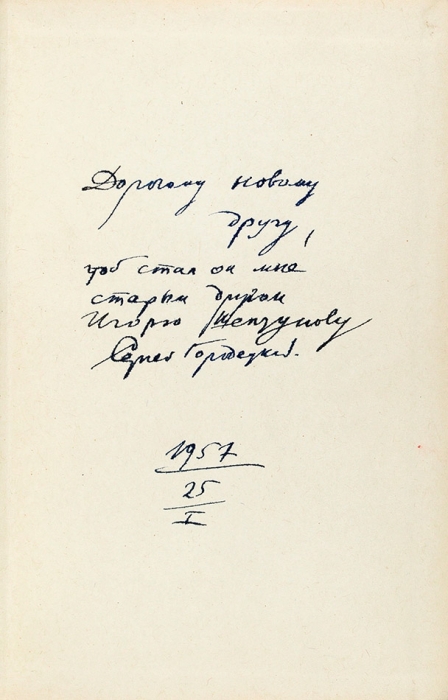 Дорогому новому
другу,
чтоб стал он мне
старым другом
Игорю Жемчужову
Сергей Городецкий.
1957
25
I